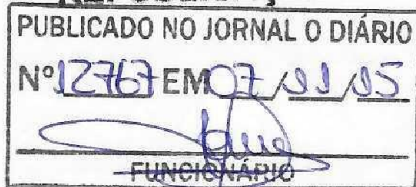 PUBLICADO NO JORNAL O DIÁRIO
Nº 12767 EM 07/11/15
FUNCIONÁRIO